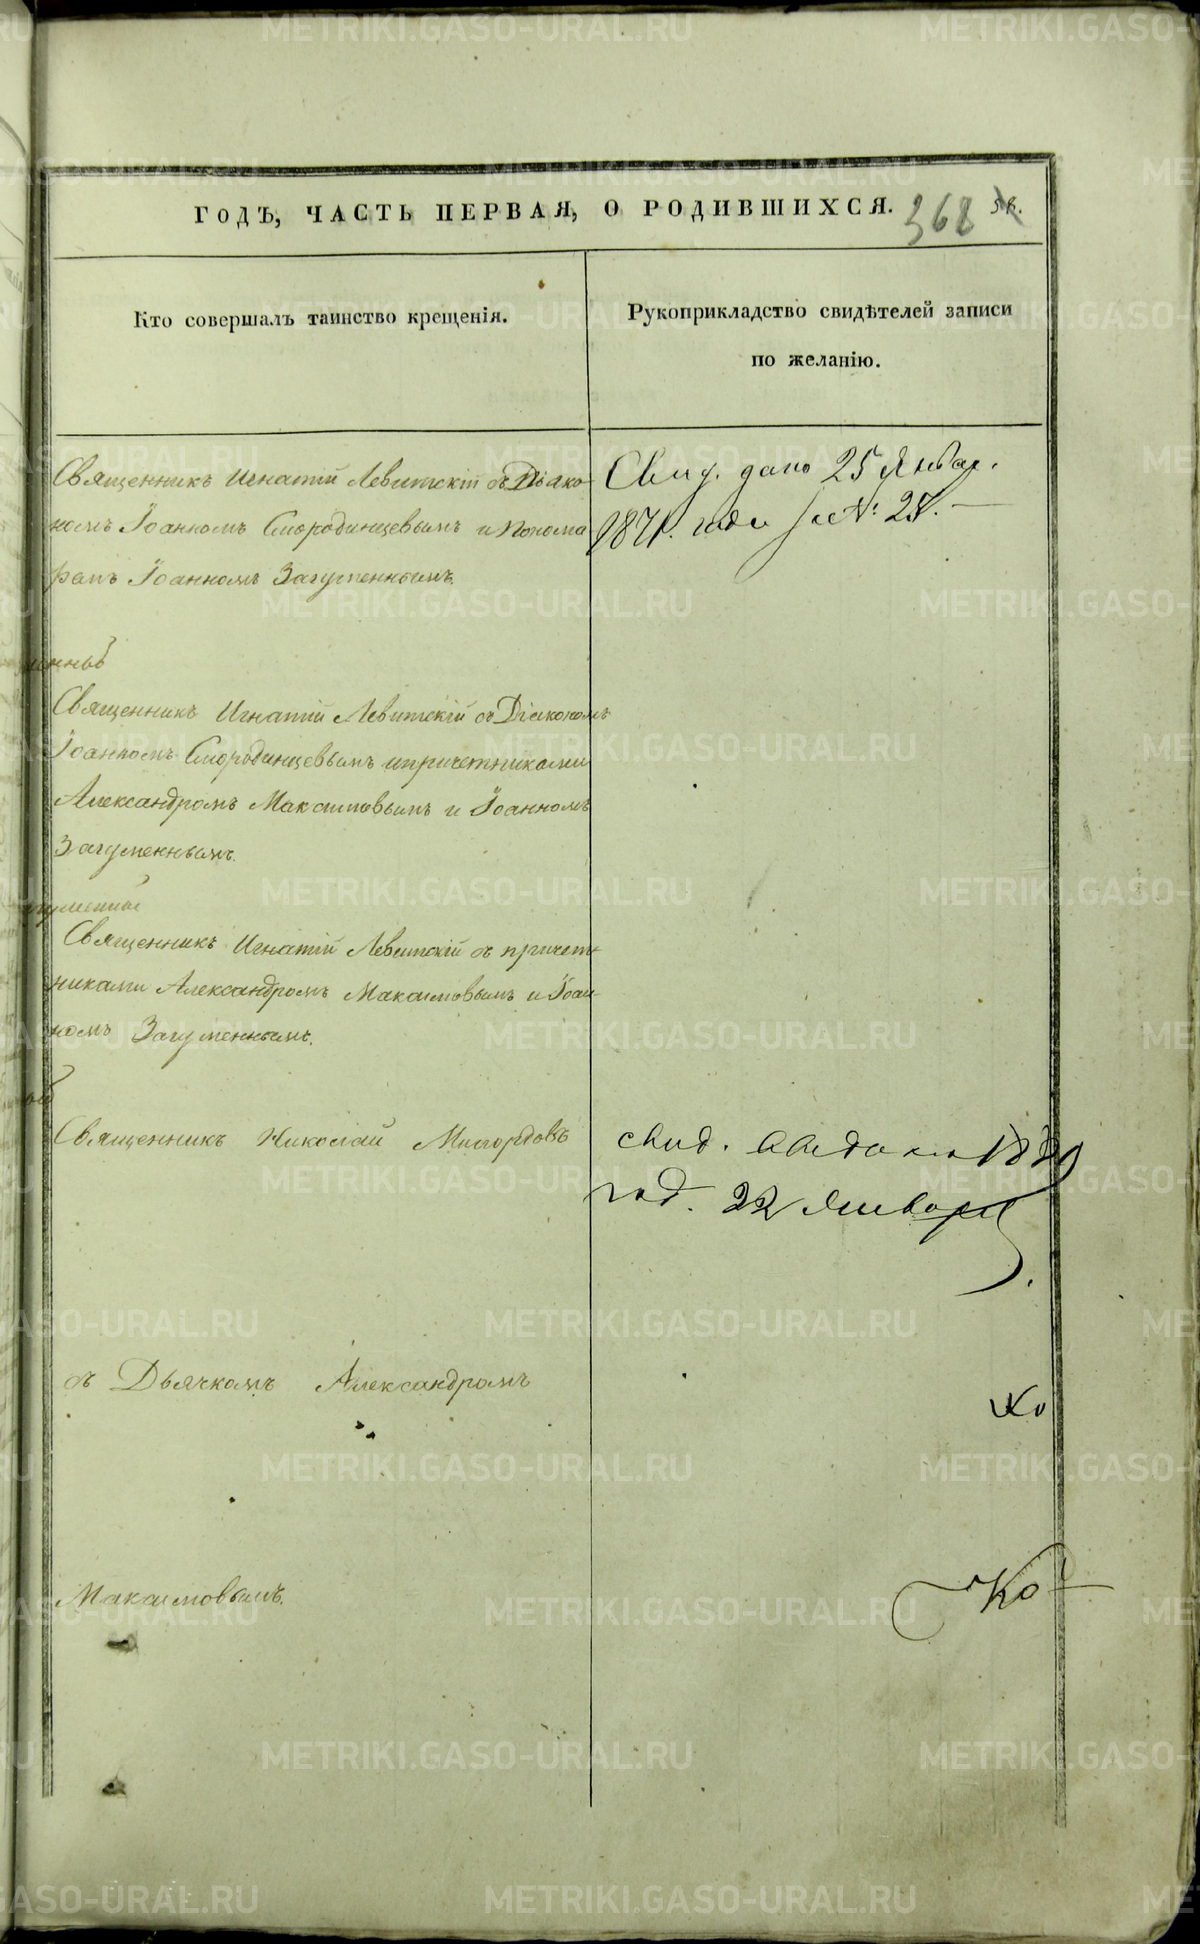 ГОДЪ, ЧАСТЬ ПЕРВАЯ, О РОДИВШИХСЯ.
368
Кто совершалъ таинство крещенія.
Рукоприкладство свидѣтелей записи
по желанію.
Священникъ Игнатій Левитскій съ Діако-
номъ Іоанномъ Смородинцевымъ и Понома
ремъ Іоанномъ Загуменнымъ.
Свид. дано 25 Январ.
1871. года за №: 28.
Священникъ Игнатій Левитскій съ Діакономъ
Іоанномъ Смородинцевымъ и причетниками
Александромъ Максимовымъ и Іоанномъ
Загуменнымъ.
Священникъ Игнатій Левитскій съ причет-
никами Александромъ Максимовымъ и Іоан
номъ Загуменнымъ.
Священникъ Николай
съ Дьячкомъ Александромъ
Максимовымъ.
свид.
год. 22 Января
Ко
METRIKI.GASO-URAL.RU